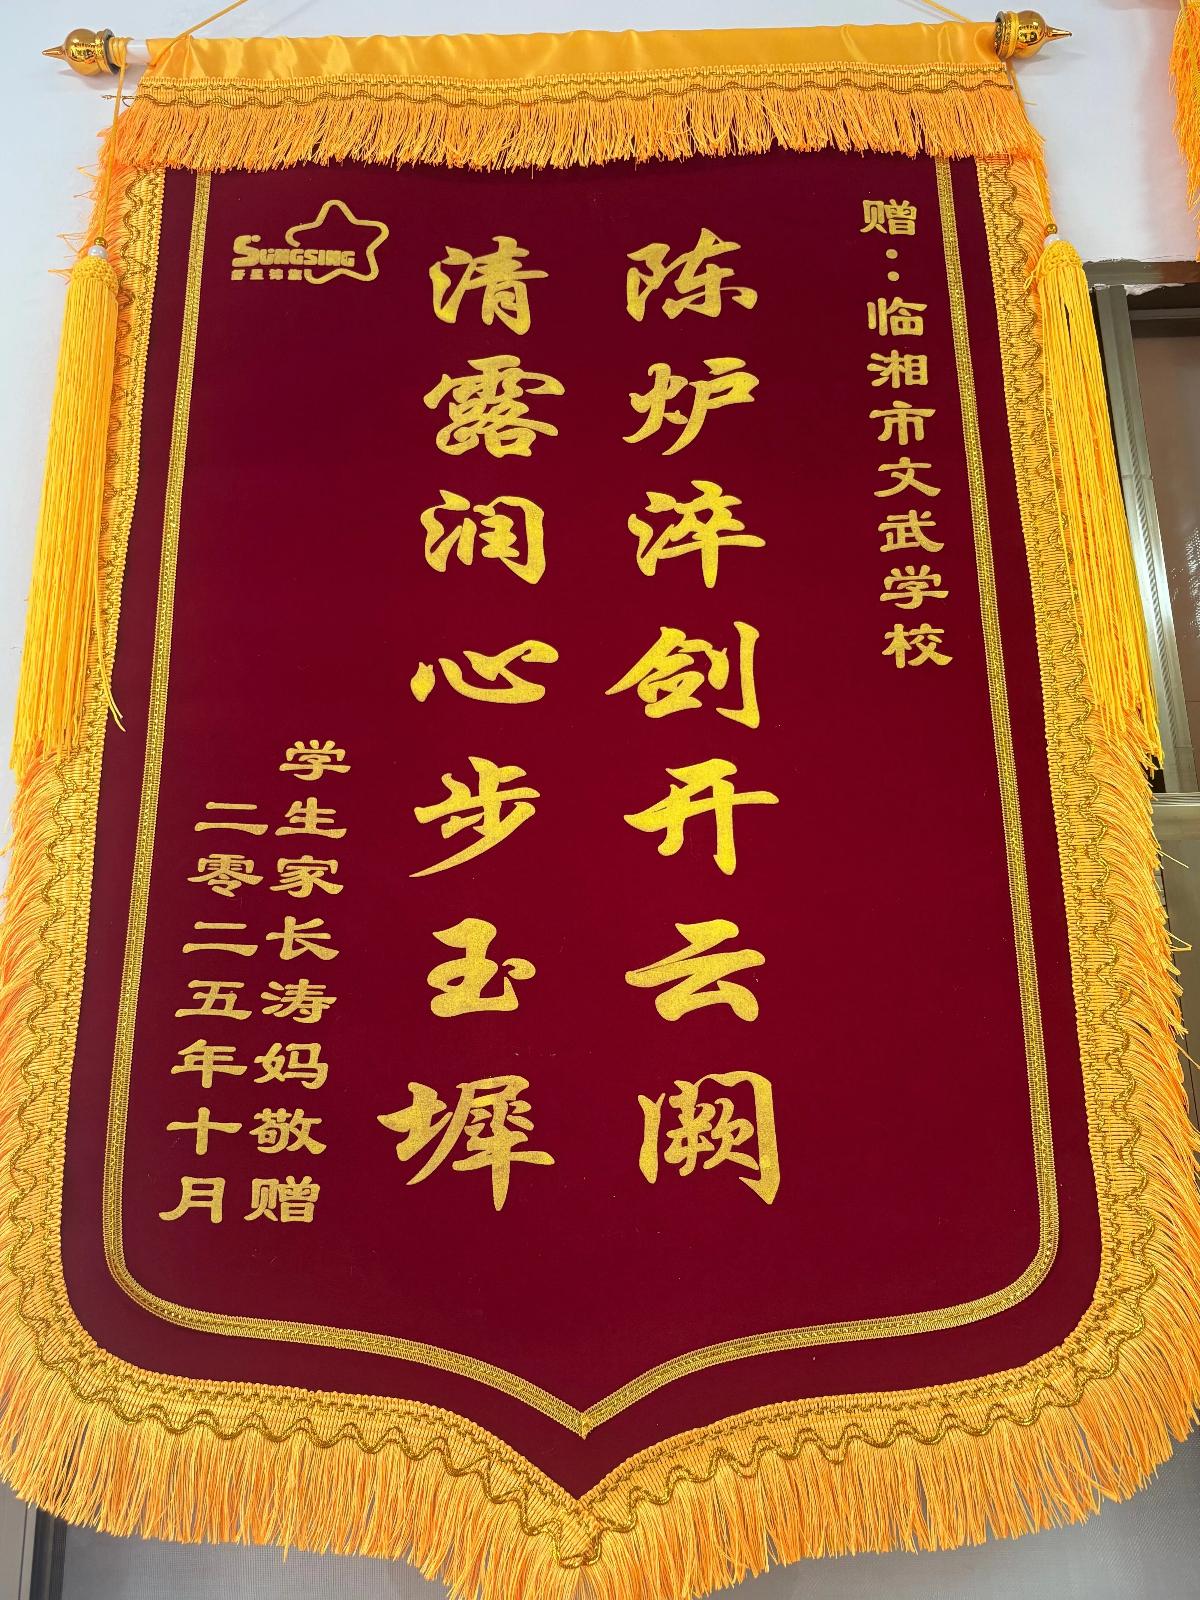 赠：临湘市文武学校
陈炉淬剑开云阙
清露润心步玉墀
学生家长涛妈敬赠
二零二五年十月
SUNGSING